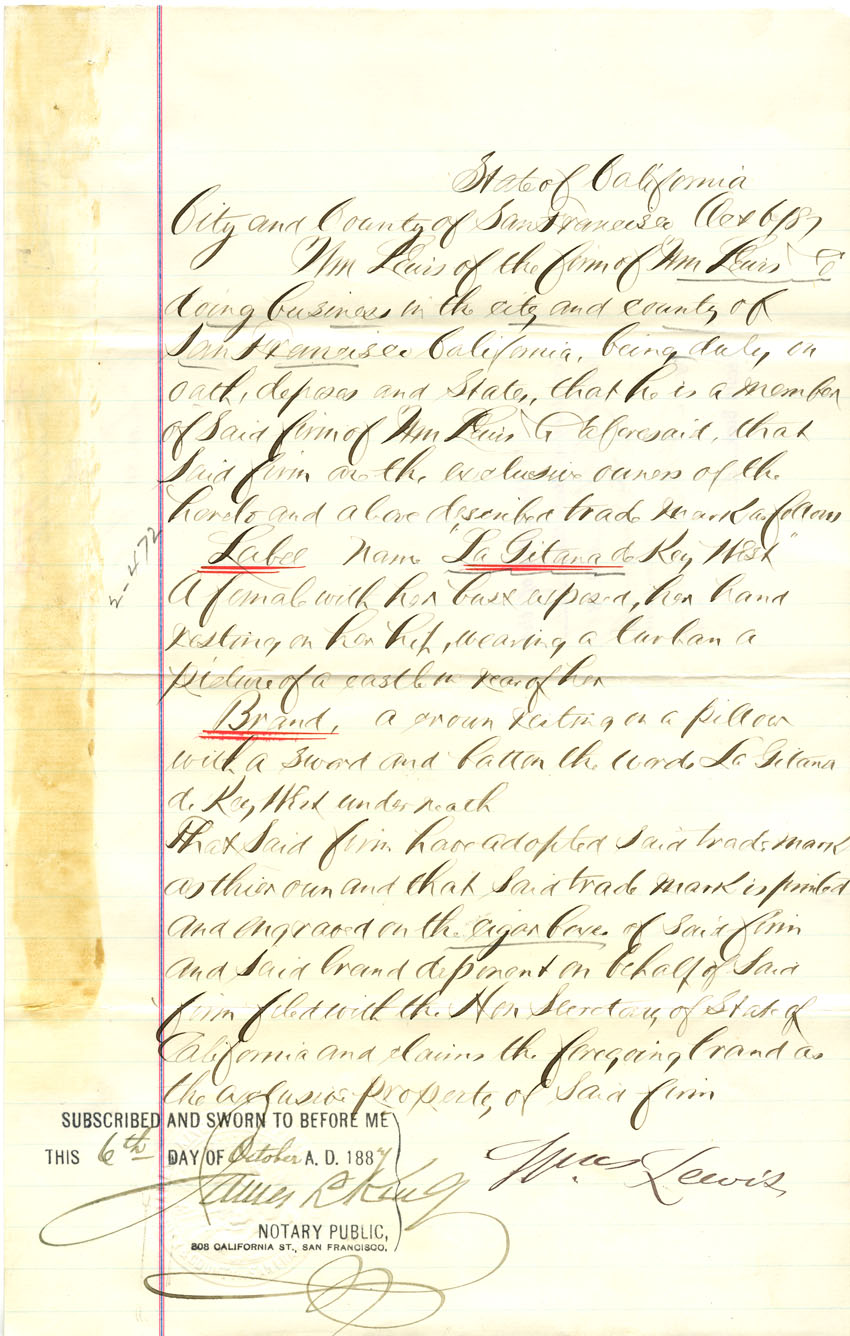 State of California
City and County of San Francisco Oct 6/87
Wm Lewis of the firm of Wm Lewis & Co
doing business in the city and county of
San Francisco California, being duly, on
oath, deposes and States, that he is a member
of Said firm of Wm Lewis & Co aforesaid, that
Said firm are the exclusive owners of the
hereto and above described trade mark as follows
Label Name "La Gitana de Key West"
A female with her bust exposed, her hand
resting on her hip, wearing a turban a
picture of a castle in rear of her
Brand, a crown resting on a pillow
with a sword and batton the words La Gitana
de Key West underneath
That Said firm have adopted Said trade mark
as thier own and that Said trade mark is printed
and engraved on the cigar boxes of Said firm
and Said brand deponent on behalf of Said
firm filed with the Hon Secretary of State of
California and claims the foregoing brand as
the exclusive property of Said firm
SUBSCRIBED AND SWORN TO BEFORE ME
THIS 6th DAY OF October A. D. 1887
James L King
Wm Lewis
NOTARY PUBLIC,
308 CALIFORNIA ST., SAN FRANCISCO.